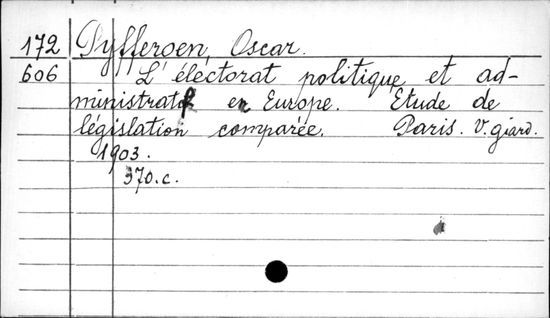 172 Pyfferoen, Oscar.
606 L'électorat politique et ad-
ministratif en Europe. Étude de
législation comparée. Paris. V. giard.
1903.
370.c.